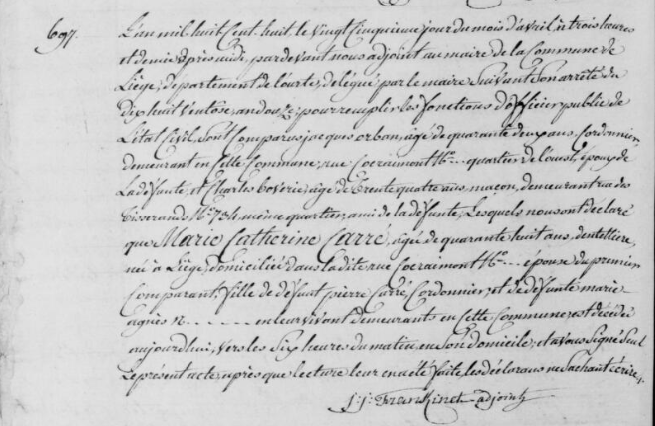 697. L'an mil huit Cent huit le vingt Cinquieme jour du mois d'avril, à trois heures
et demie après midi, pardevant nous adjoint au maire de la Commune de
Liège, departement de l'ourte, délégué par le maire Suivant Son arrêté du
dix huit Ventose, an douze, pour remplir les fonctions d'officier public de
L'état Civil, Sont Comparus jacques orban, agé de quarante deux ans, Cordonnier,
demeurant en Cette Commune, rue Cocraimont N.o ... quartier de l'ouest, époux de
La défunte, et Charles Boverie, agé de trente quatre ans maçon, demeurant rue des
Tisserands N.o 704, même quartier, ami de la défunte, Lesquels nous ont déclaré
que Marie Catherine Carré, agée de quarante huit ans, dentelliere,
née à Liège, domiciliée dans la dite rue Cocraimont N.o ... épouse du premier
Comparant, fille de défunt pierre Carré, Cordonnier, et de défunte marie
agnès n. . . . . . . . en leur vivant demeurants en Cette Commune, est décédée
aujourdhui, vers les Six heures du matin, en Son domicile, et avons Signé Seul
Le présent acte, après que lecture leur en a été faite, les déclarans ne Sachant écrire.
j: j: Frankinet adjoint